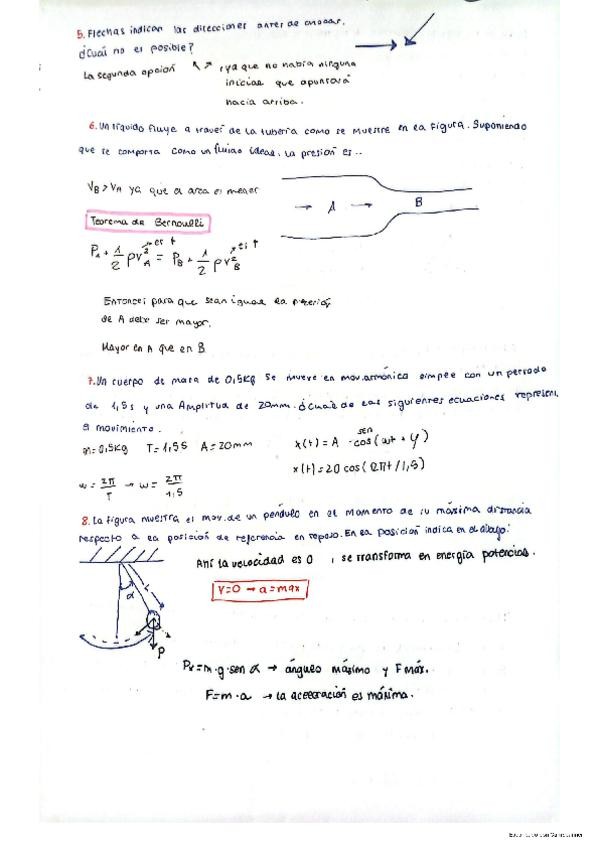 5. Flechas indican las direcciones antes de chocar.
¿Cuál no es posible?
La segunda opción ↖ ↗ , ya que no había ninguna
inicial que apuntará
hacia arriba.
6. Un líquido fluye a través de la tubería como se muestre en la figura. Suponiendo
que se comporta como un fluido ideal. La presión es..
V_B > V_A ya que el area es menor
→ A → B
Teorema de Bernoulli
P_A + 1/2 ρ V_A² = P_B + 1/2 ρ V_B²
Entonces para que sean igual la presión
de A debe ser mayor.
Mayor en A que en B
7. Un cuerpo de masa de 0,5Kg se mueve en mov. armónico simple con un periodo
de 1,5s y una Amplitud de 20mm. ¿Cuál de las siguientes ecuaciones represent
el movimiento.
m=0,5Kg T=1,5s A=20mm x(t) = A · cos(ωt + φ)
sen
x(t) = 20 cos(2πt/1,5)
ω = 2π/T → ω = 2π/1,5
8. La figura muestra el mov. de un péndulo en el momento de su máxima distancia
respecto a la posición de referencia en reposo. En la posición indica en el dibujo:
Ahí la velocidad es 0 , se transforma en energía potencias.
V=0 → a=max
α L
P
Px=m·g·sen α → ángulo máximo y F máx.
F=m·a → la aceleración es máxima.